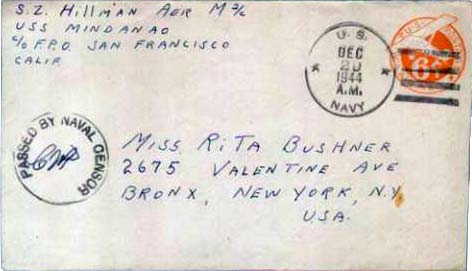 S. Z. Hillman AER M 3/c
USS MINDANAO
c/o F.P.O. SAN FRANCISCO
CALIF
U.S.
DEC
20
1944
A.M.
NAVY
6c
PASSED BY NAVAL CENSOR
MISS RITA BUSHNER
2675 VALENTINE AVE
BRONX, NEW YORK, N.Y.
U.S.A.